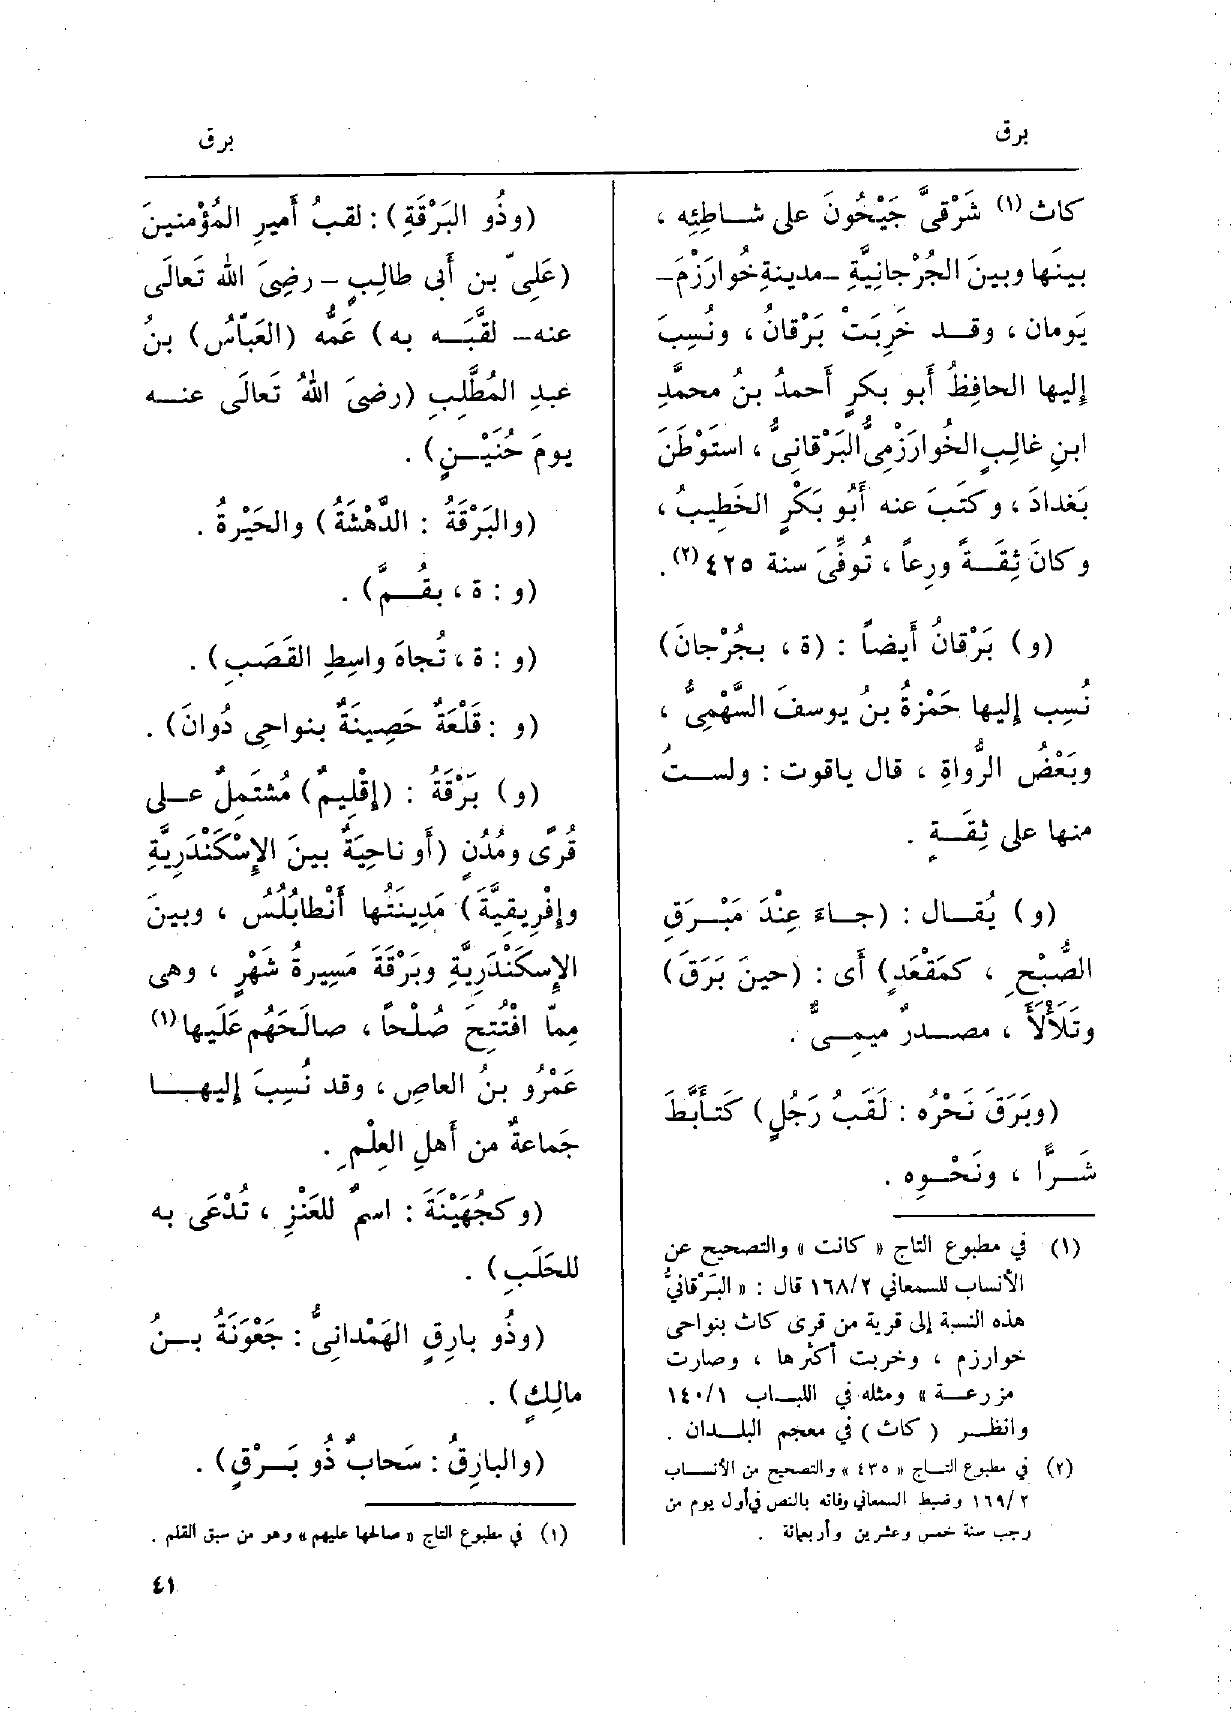 برق
كاث (١) شَرْقىَّ جَيْحُونَ على شـاطِئِه ،
بينَها وبينَ الجُرْجانِيَّةِ -مدينةِ خُوارَزْمَ-
يَومان ، وقـد خَرِبَتْ بَرْقانُ ، ونُسِبَ
إليها الحافِظُ أبو بكرٍ أَحمدُ بنُ محمَّدِ
ابنِ غالِبٍ الخُوارَزْمِىُّ البَرْقانِىُّ ، استَوْطَنَ
بَغدادَ ، وكَتَبَ عنه أَبُو بَكْرٍ الخَطِيبُ ،
وكانَ ثِقَـةً ورِعاً ، تُوفِّىَ سنة ٤٢٥ (٢) .
(و) بَرْقانُ أَيضاً : (ة ، بجُرْجانَ)
نُسِب إليها حَمْزةُ بنُ يوسفَ السَّهْمِىُّ ،
وبَعْضُ الرُّواةِ ، قال ياقوت : ولســتُ
منها على ثِقَـةٍ .
(و) يُقـال : (جـاءَ عِنْدَ مَبْـرَقِ
الصُّبْحِ ، كمَقْعَدٍ) أَى : (حينَ بَرَقَ)
وتَلَأْلَأَ ، مصـدرٌ ميمِـىٌّ .
(وبَرَقَ نَحْرُه : لَقَبُ رَجُلٍ) كَتـأَبَّطَ
شَـرًّا ، ونَحْـوِه .
(١) في مطبوع التاج « كانت » والتصحيح عن
الأنساب للسمعاني ١٦٨/٢ قال : « البَرْقانيُّ
هذه النسبة إلى قرية من قرى كاث بنواحى
خوارزم ، وخربت أكثرها ، وصارت
مزرعـة » ومثله في اللبـاب ١٤٠/١
وانظـر ( كاث ) في معجم البلـدان .
(٢) في مطبوع التـاج « ٤٣٥ » والتصحيح من الأنسـاب
١٦٩/٢ وضبط السمعاني وفاته بالنص في أول يوم من
رجب سنة خمس وعشرين وأربعمائة .
برق
(وذُو البَرْقَةِ) : لقبُ أَميرِ المُؤْمنينَ
(عَلِىّ بن أَبى طالِبٍ - رضِىَ الله تَعالَى
عنه- لقَّبَـه به) عَمُّه (العَبّاسُ) بنُ
عبدِ المُطَّلِبِ (رضىَ اللهُ تَعالَى عنـه
يومَ حُنَيْـنٍ) .
(والبَرْقَةُ : الدَّهْشَةُ) والحَيْرةُ .
(و : ة ، بقُـمَّ) .
(و : ة ، تُجاهَ واسِطِ القَصَبِ) .
(و : قَلْعَةٌ حَصِينَةٌ بنواحِى دُوانَ) .
(و) بَرْقَةُ : (إقْلِيمٌ) مُشتَمِلٌ عـلى
قُرًى ومُدُنٍ (أَو ناحِيَةٌ بينَ الإِسْكَنْدَرِيَّةِ
وإفْرِيقِيَّةَ) مَدِينَتُها أَنْطابُلُس ، وبينَ
الإِسكَنْدَرِيَّةِ وبَرْقَةَ مَسِيرةُ شَهْرٍ ، وهى
مِمّا افْتُتِحَ صُلْحاً ، صالَحَهُم عَلَيها (١)
عَمْرُو بنُ العاصِ ، وقد نُسِبَ إليهـا
جَماعةٌ من أَهلِ العِلْمِ .
(وكجُهَيْنَةَ : اسمٌ للعَنْزِ ، تُدْعَى به
للحَلَبِ) .
(وذُو بارِقٍ الهَمْدانِىُّ : جَعْوَنَةُ بـنُ
مالِكٍ) .
(والبارِقُ : سَحابٌ ذُو بَـرْقٍ) .
(١) في مطبوع التاج « صالحها عليهم » وهو من سبق القلم .
٤١